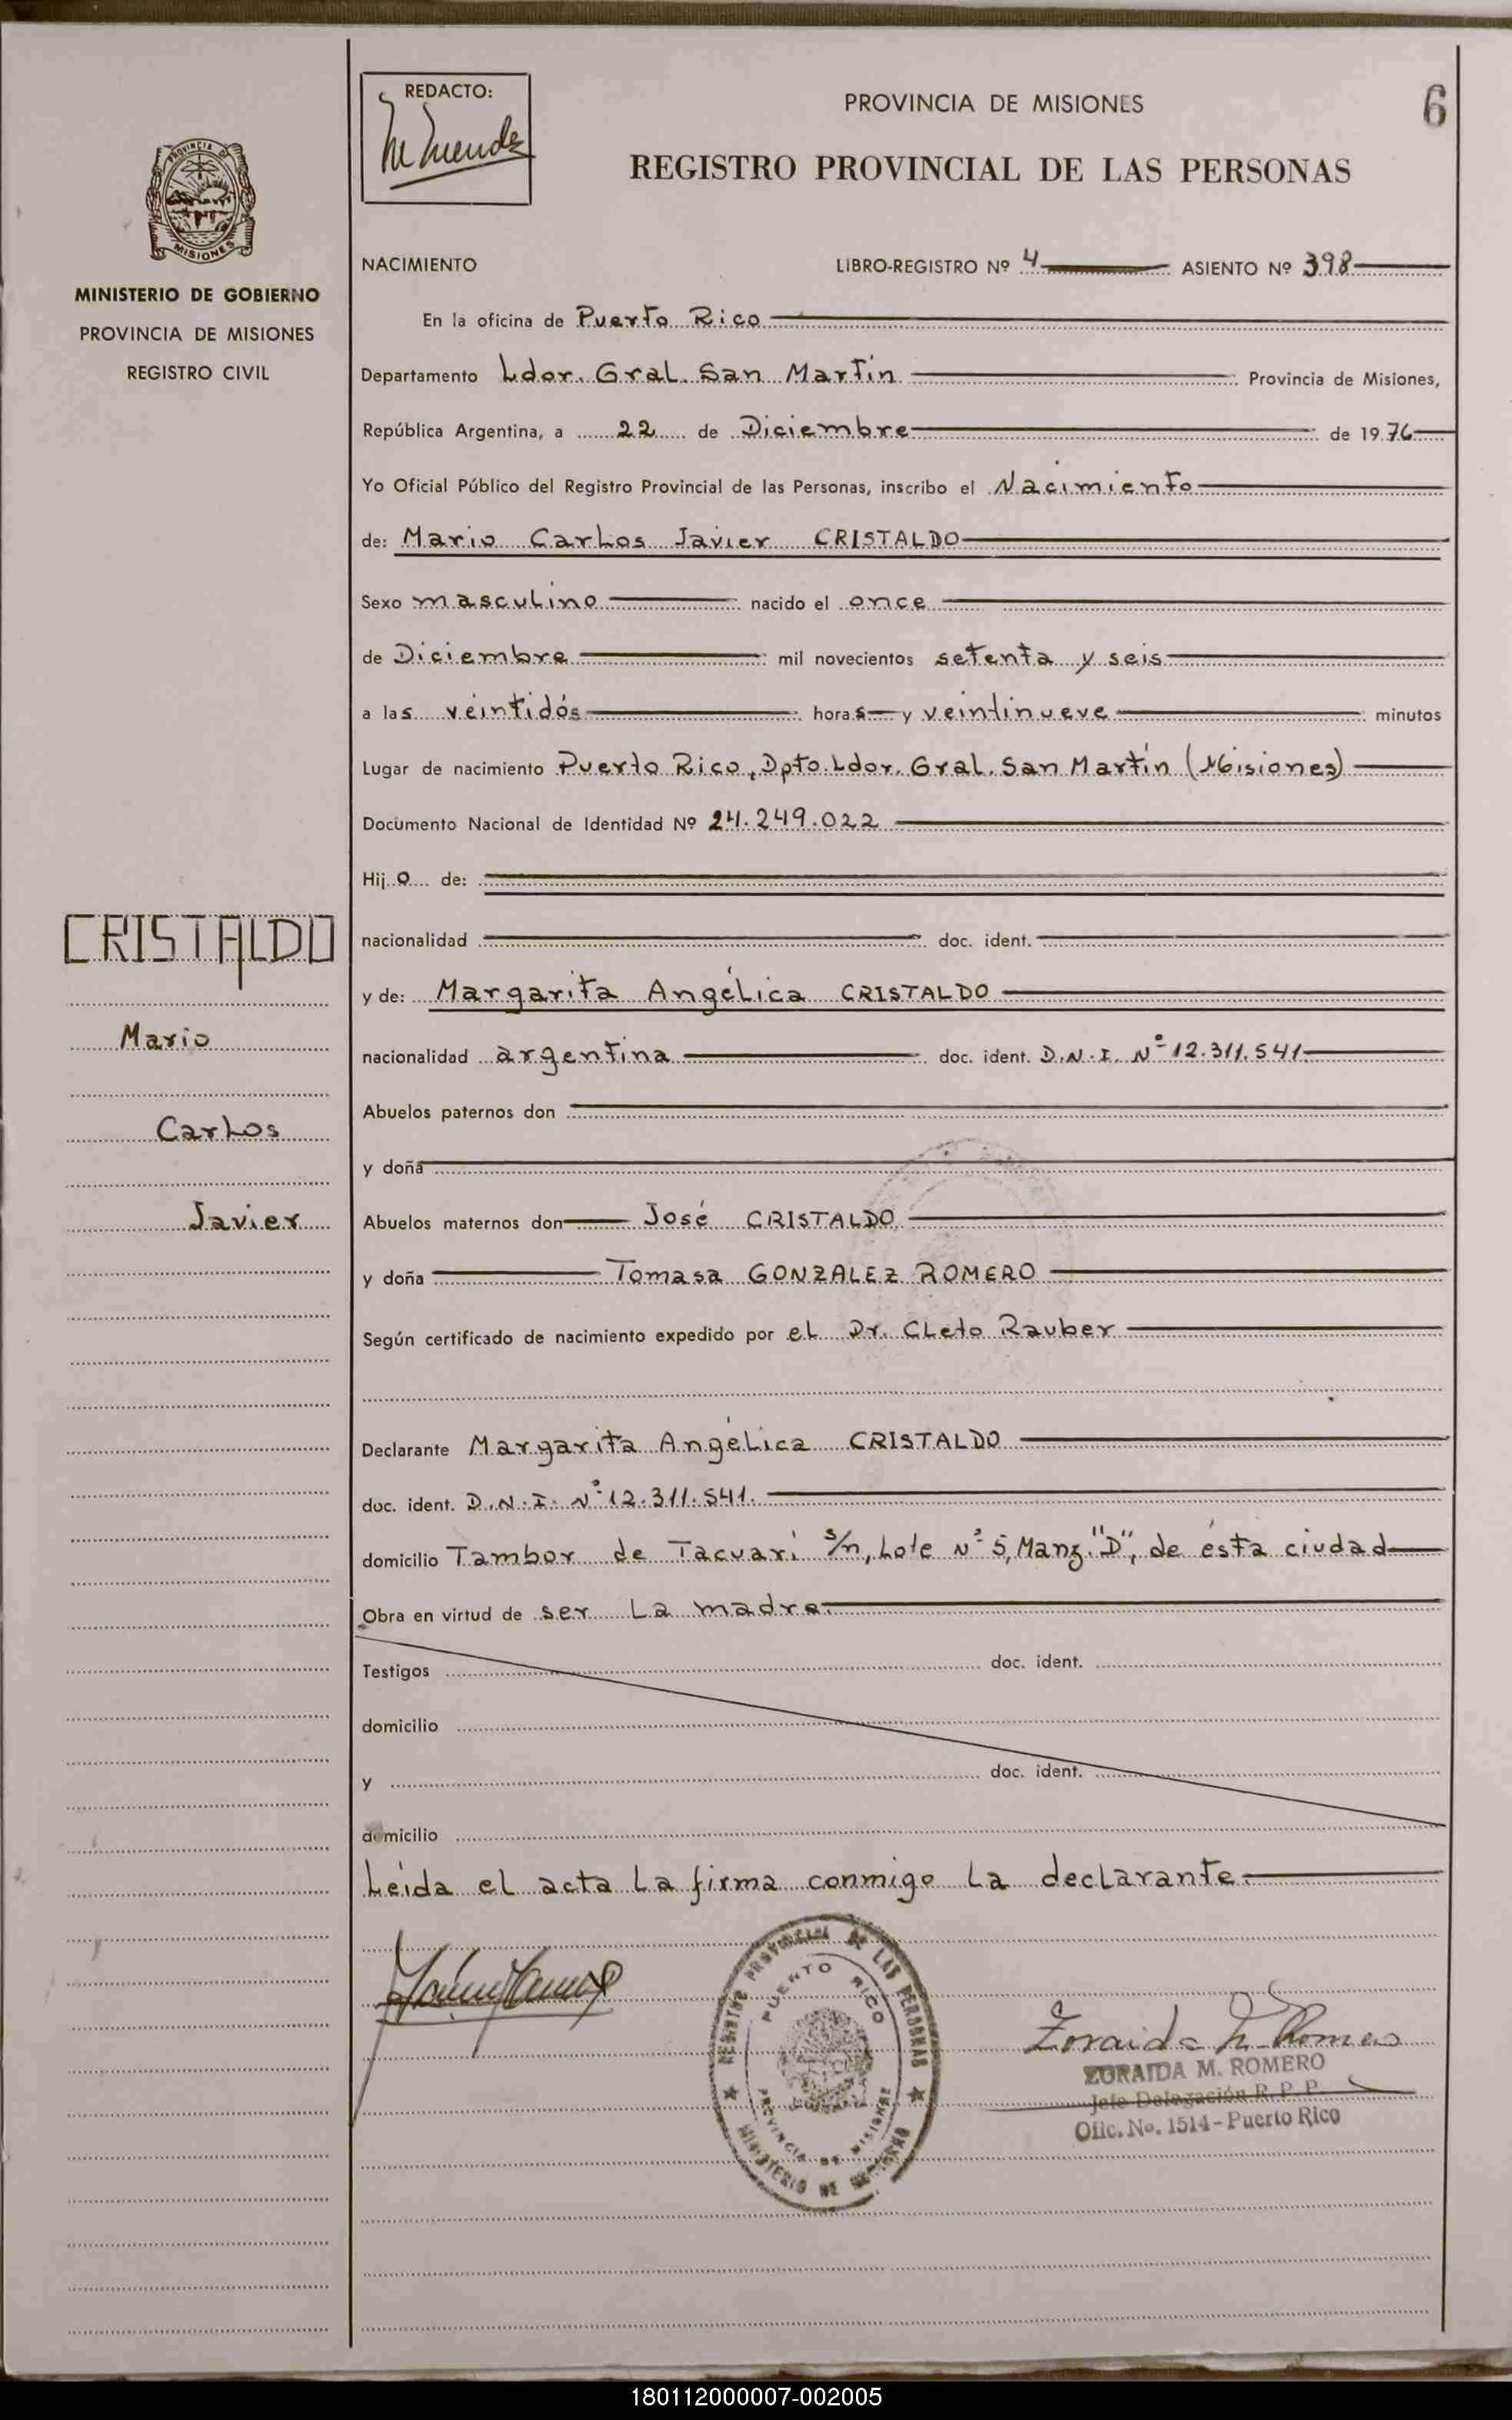 REDACTO:
PROVINCIA DE MISIONES
6
REGISTRO PROVINCIAL DE LAS PERSONAS
PROVINCIA D MISIONES
MINISTERIO DE GOBIERNO
PROVINCIA DE MISIONES
REGISTRO CIVIL
NACIMIENTO LIBRO-REGISTRO Nº 4 ASIENTO Nº 398
En la oficina de Puerto Rico
Departamento Ldor. Gral. San Martín Provincia de Misiones,
República Argentina, a 22 de Diciembre de 1976
Yo Oficial Público del Registro Provincial de las Personas, inscribo el Nacimiento
de: Mario Carlos Javier CRISTALDO
Sexo masculino nacido el once
de Diciembre mil novecientos setenta y seis
a las veintidós horas y veintinueve minutos
Lugar de nacimiento Puerto Rico, Dpto. Ldor. Gral. San Martín (Misiones)
Documento Nacional de Identidad Nº 24.249.022
Hijo de:
nacionalidad doc. ident.
y de: Margarita Angélica CRISTALDO
nacionalidad argentina doc. ident. D.N.I. Nº 12.311.541
Abuelos paternos don
y doña
Abuelos maternos don José CRISTALDO
y doña Tomasa GONZALEZ ROMERO
Según certificado de nacimiento expedido por el Dr. Cleto Rauber
Declarante Margarita Angélica CRISTALDO
doc. ident. D.N.I. Nº 12.311.541.
domicilio Tambor de Tacuarí s/n, Lote Nº 5, Manz. "D", de ésta ciudad
Obra en virtud de ser la madre.
Testigos doc. ident.
domicilio
y doc. ident.
domicilio
Leída el acta la firma conmigo la declarante.
CRISTALDO
Mario
Carlos
Javier
REGISTRO PROVINCIAL DE LAS PERSONAS
PUERTO RICO
PROVINCIA DE MISIONES
MINISTERIO DE GOBIERNO
Zoraida M. Romero
ZORAIDA M. ROMERO
Jefe Delegación R. P. P.
Ofic. No. 1514 - Puerto Rico
180112000007-002005